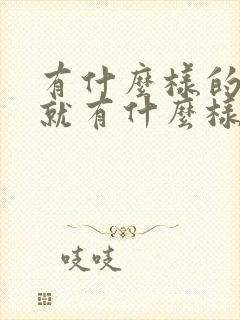 有什麼樣的
就有什麼樣
吱吱